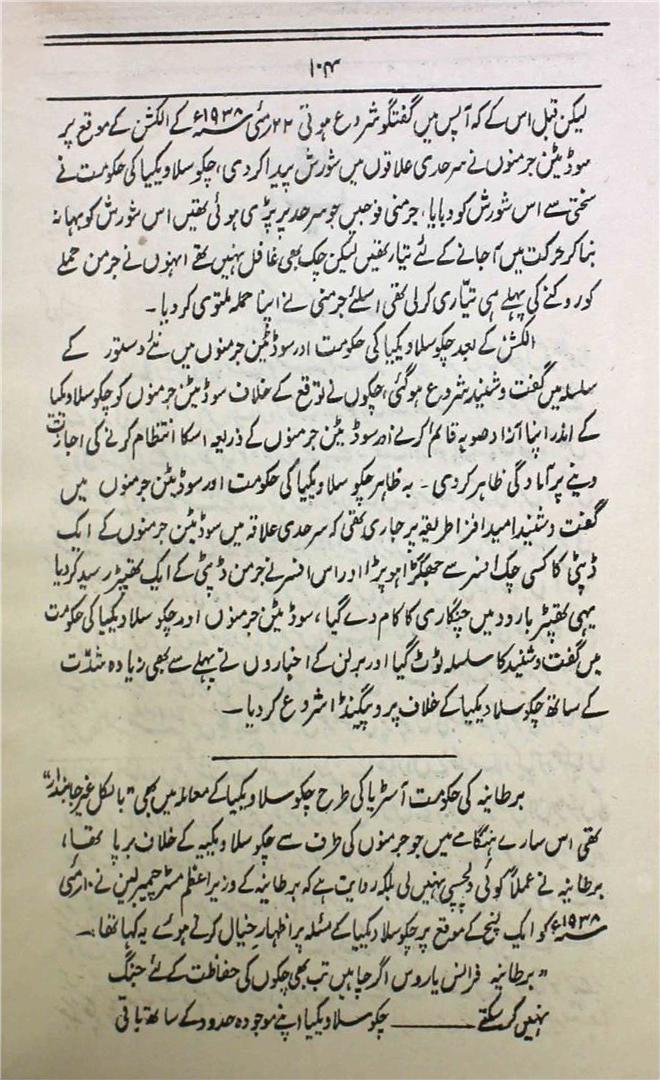 ۱۰۴
لیکن قبل اس کے کہ آپس میں گفتگو شروع ہوتی ۲۲ مئی ۱۹۳۸ء کے الکشن کے موقع پر
سوڈیٹن جرمنوں نے سرحدی علاقوں میں شورش پیدا کر دی، چکوسلاویکیا کی حکومت نے
سختی سے اس شورش کو دبایا، جرمنی فوجیں جو سرحد پر پڑی ہوئی تھیں اس شورش کو بہانہ
بنا کر حرکت میں آجانے کے لئے تیار تھیں لیکن چک بھی غافل نہیں تھے انہوں نے جرمن حملے
کو روکنے کی پہلے ہی تیاری کر لی تھی اسلئے جرمنی نے اپنا حملہ ملتوی کر دیا۔
الکشن کے بعد چکوسلاویکیا کی حکومت اور سوڈیٹن جرمنوں میں نئے دستور کے
سلسلہ میں گفت و شنید شروع ہو گئی، چکوں نے توقع کے خلاف سوڈیٹن جرمنوں کو چکوسلاویکیا
کے اندر اپنا آزاد صوبہ قائم کرنے اور سوڈیٹن جرمنوں کے ذریعہ اسکا انتظام کرنے کی اجازت
دینے پر آمادگی ظاہر کر دی۔ بہ ظاہر چکوسلاویکیا کی حکومت اور سوڈیٹن جرمنوں میں
گفت و شنید امید افزا طریقہ پر جاری تھی کہ سرحدی علاقہ میں سوڈیٹن جرمنوں کے ایک
ڈپٹی کا کسی چک افسر سے جھگڑا ہو پڑا اور اس افسر نے جرمن ڈپٹی کے ایک تھپڑ رسید کر دیا
یہی تھپڑ بارود میں چنگاری کا کام دے گیا، سوڈیٹن جرمنوں اور چکوسلاویکیا کی حکومت
میں گفت و شنید کا سلسلہ ٹوٹ گیا اور برلن کے اخباروں نے پہلے سے بھی زیادہ شدّت
کے ساتھ چکوسلاویکیا کے خلاف پروپیگنڈا شروع کر دیا۔
برطانیہ کی حکومت آسٹریا کی طرح چکوسلاویکیا کے معاملہ میں بھی "بالکل غیر جانبدار"
تھی اس سارے ہنگامے میں جو جرمنوں کی طرف سے چکوسلاویکیہ کے خلاف برپا تھا،
برطانیہ نے عملاً کوئی دلچسپی نہیں لی بلکہ روایت ہے کہ برطانیہ کے وزیر اعظم مسٹر چیمبرلین نے ۱۰ مئی
۱۹۳۸ء کو ایک لنچ کے موقع پر چکوسلاویکیا کے مسئلہ پر اظہار خیال کرتے ہوئے یہ کہا تھا:۔
"برطانیہ فرانس یا روس اگر چاہیں تب بھی چکوں کی حفاظت کے لئے جنگ
نہیں کر سکتے ——— چکوسلاویکیا اپنے موجودہ حدود کے ساتھ باقی